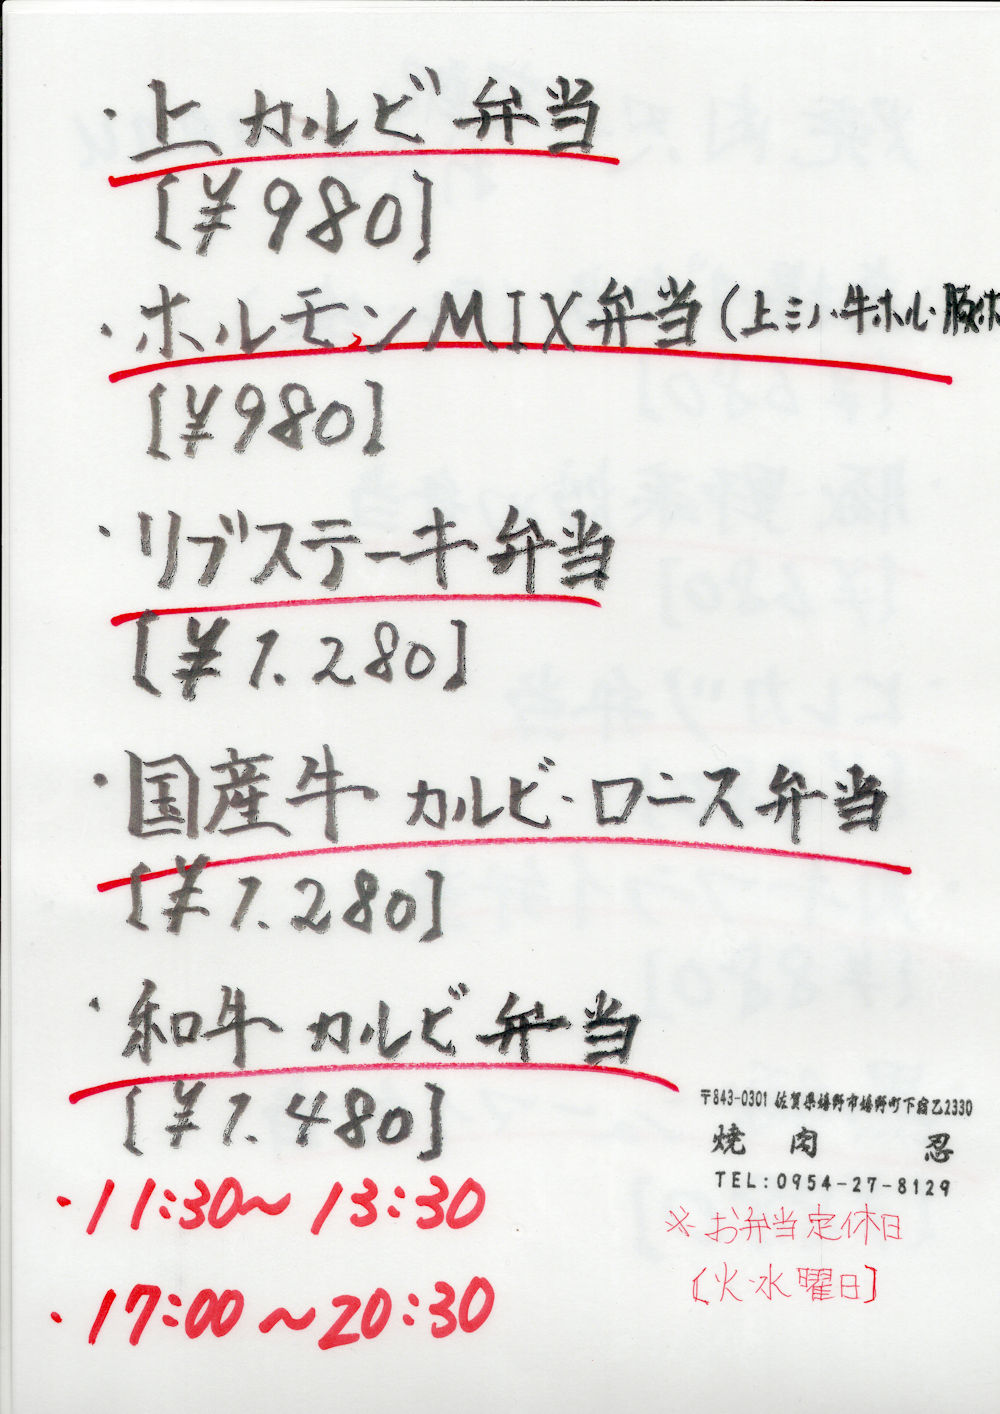 ・上カルビ弁当
[¥980]
・ホルモンMIX弁当(上ミノ・牛ホル・豚ホ
[¥980]
・リブステーキ弁当
[¥1.280]
・国産牛 カルビ・ロース弁当
[¥1.280]
・和牛カルビ弁当
[¥1.480]
〒843-0301 佐賀県嬉野市嬉野町下宿乙2330
焼肉 忍
TEL:0954-27-8129
・11:30〜13:30
※お弁当定休日
[火・水曜日]
・17:00〜20:30